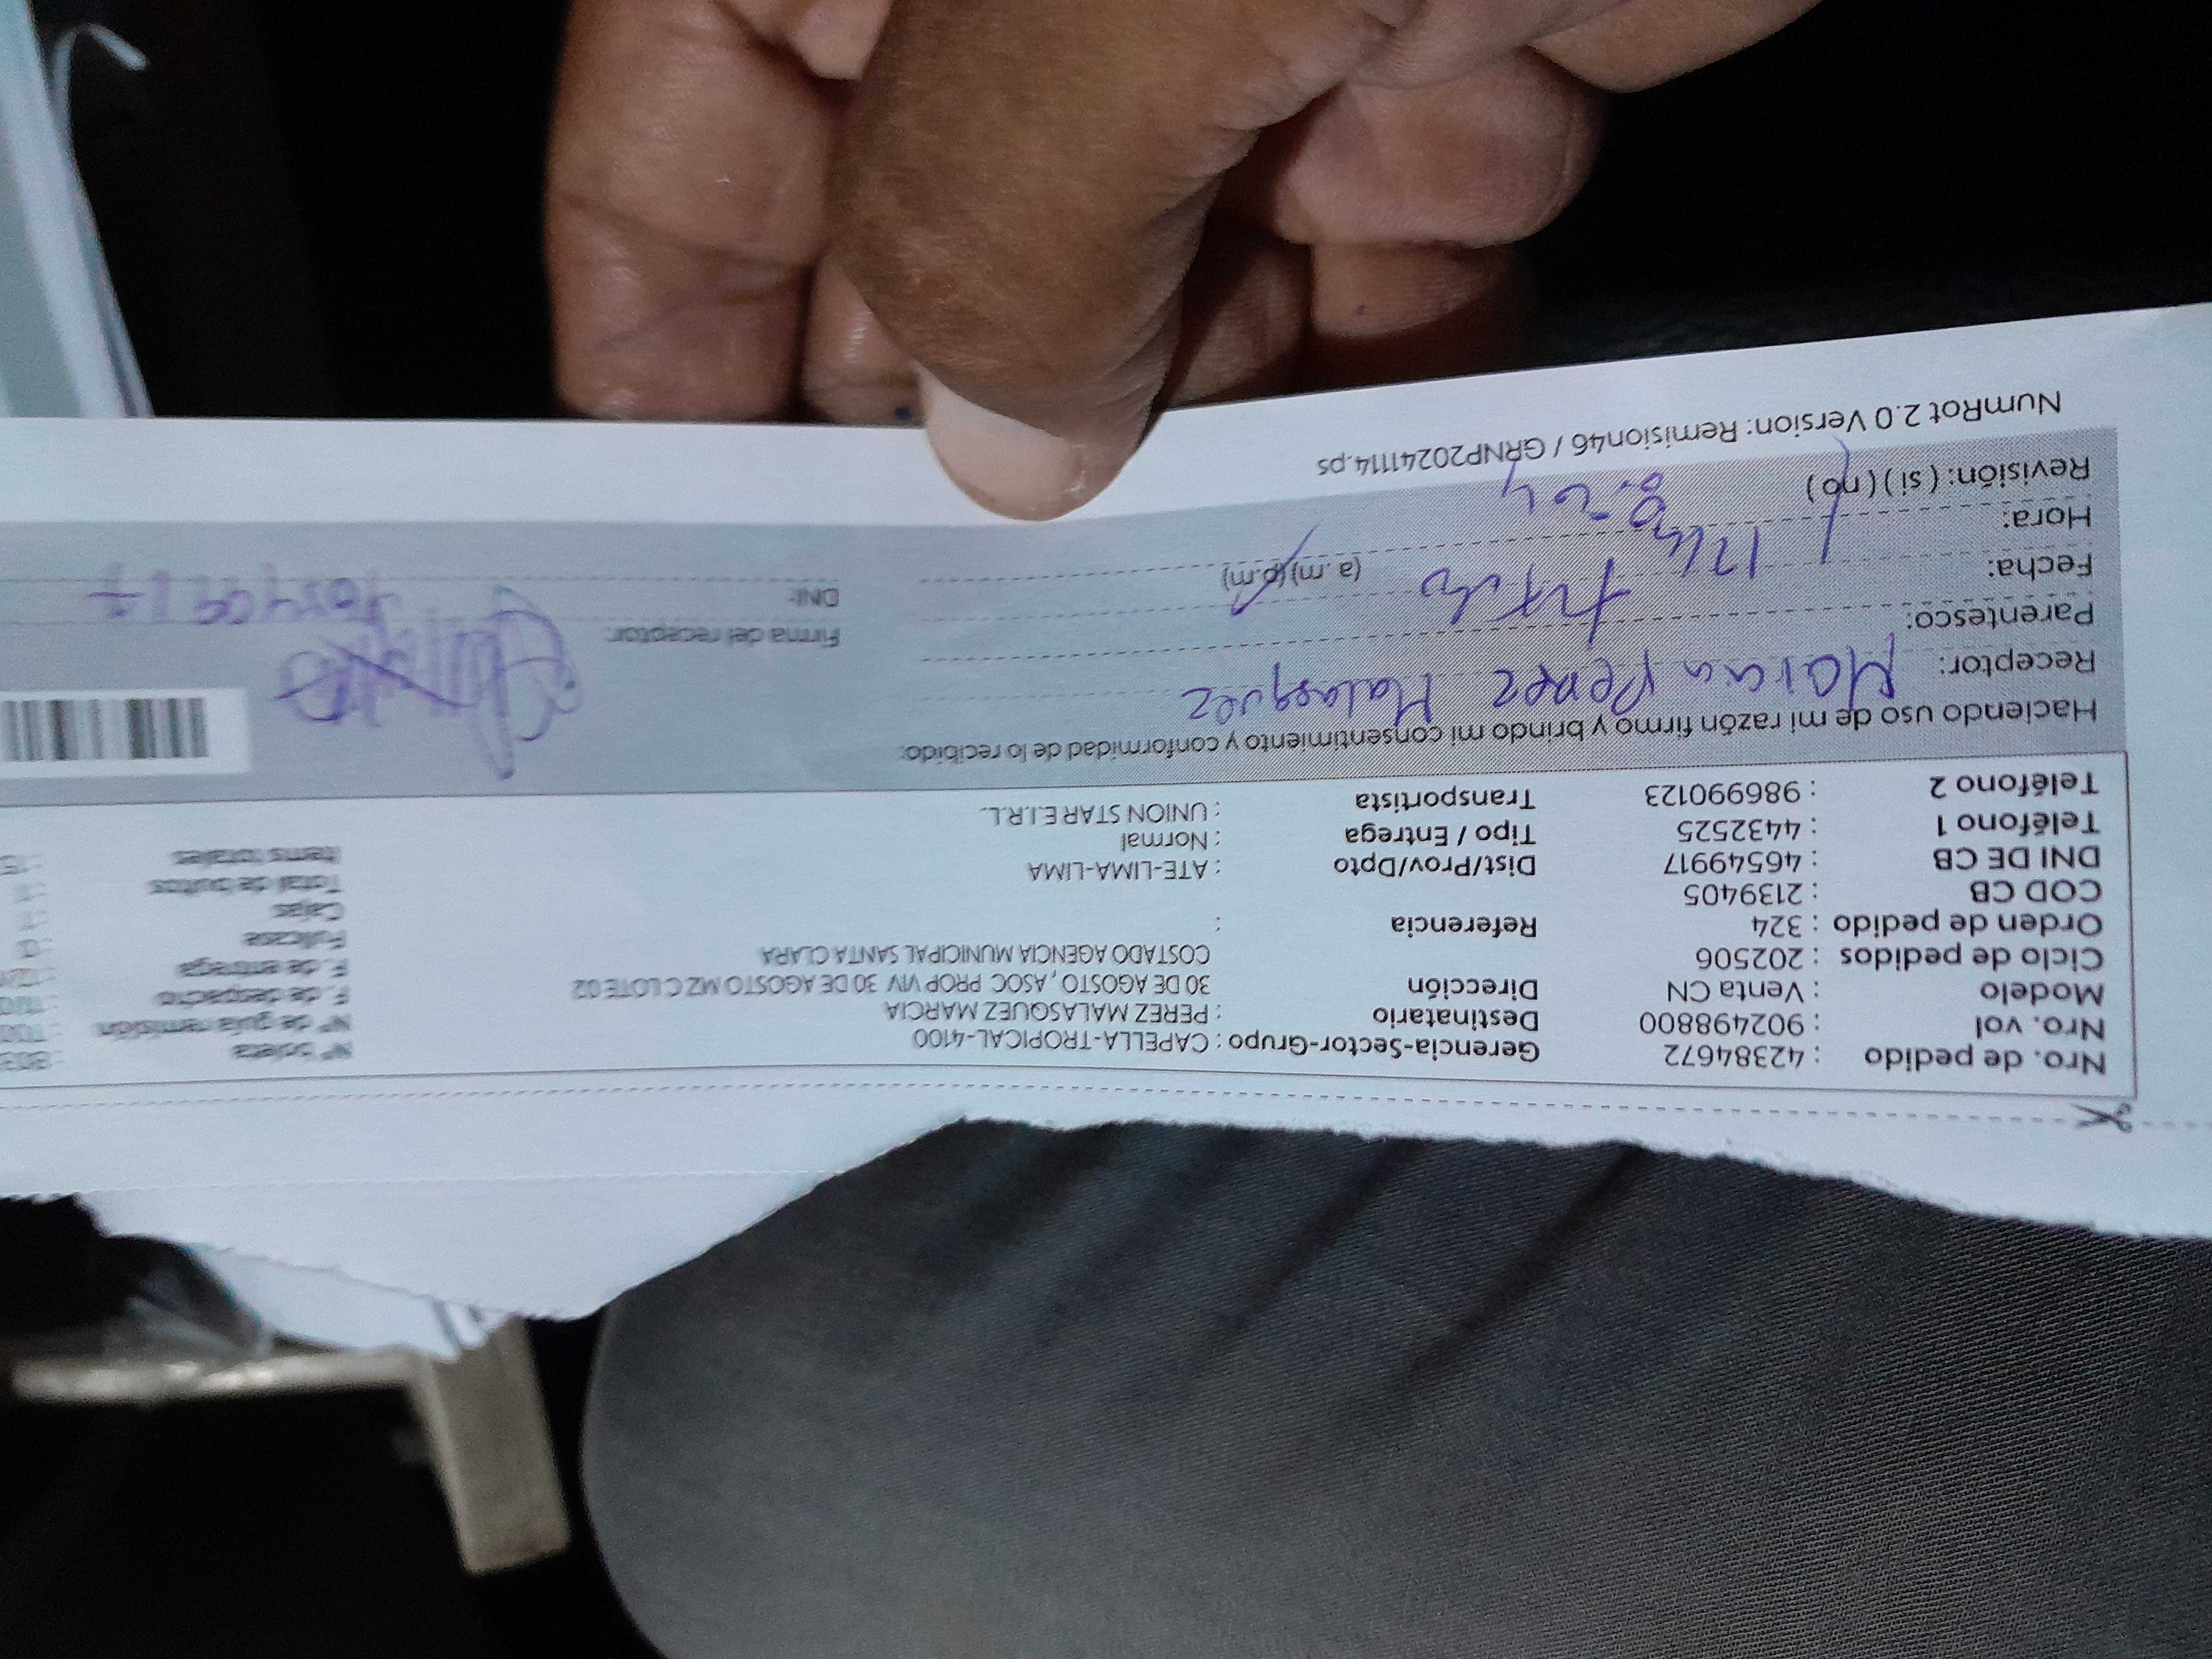 Nro. de pedido : 42384672 Gerencia-Sector-Grupo : CAPELLA-TROPICAL-4100 N° boleta
Nro. vol : 902498800 Destinatario : PEREZ MALASQUEZ MARCIA N° de guía remisión
Modelo : Venta CN Dirección 30 DE AGOSTO , ASOC PROP VIV 30 DE AGOSTO MZ C LOTE 02 F. de despacho
Ciclo de pedidos : 202506 COSTADO AGENCIA MUNICIPAL SANTA CLARA F. de entrega
Orden de pedido : 324 Referencia : Fullcase
COD CB : 2139405 Cajas
DNI DE CB : 46549917 Dist/Prov/Dpto : ATE-LIMA-LIMA Total de bultos
Teléfono 1 : 4432525 Tipo / Entrega : Normal Items totales
Teléfono 2 : 986990123 Transportista : UNION STAR E.I.R.L.
Haciendo uso de mi razón firmo y brindo mi consentimiento y conformidad de lo recibido:
Receptor: Perez Malasquez
Parentesco: Firma del receptor:
Fecha: DNI:
Hora: (a.m) (p.m)
Revisión: ( si ) ( no )
NumRot 2.0 Version: Remision46 / GRNP20241114.ps